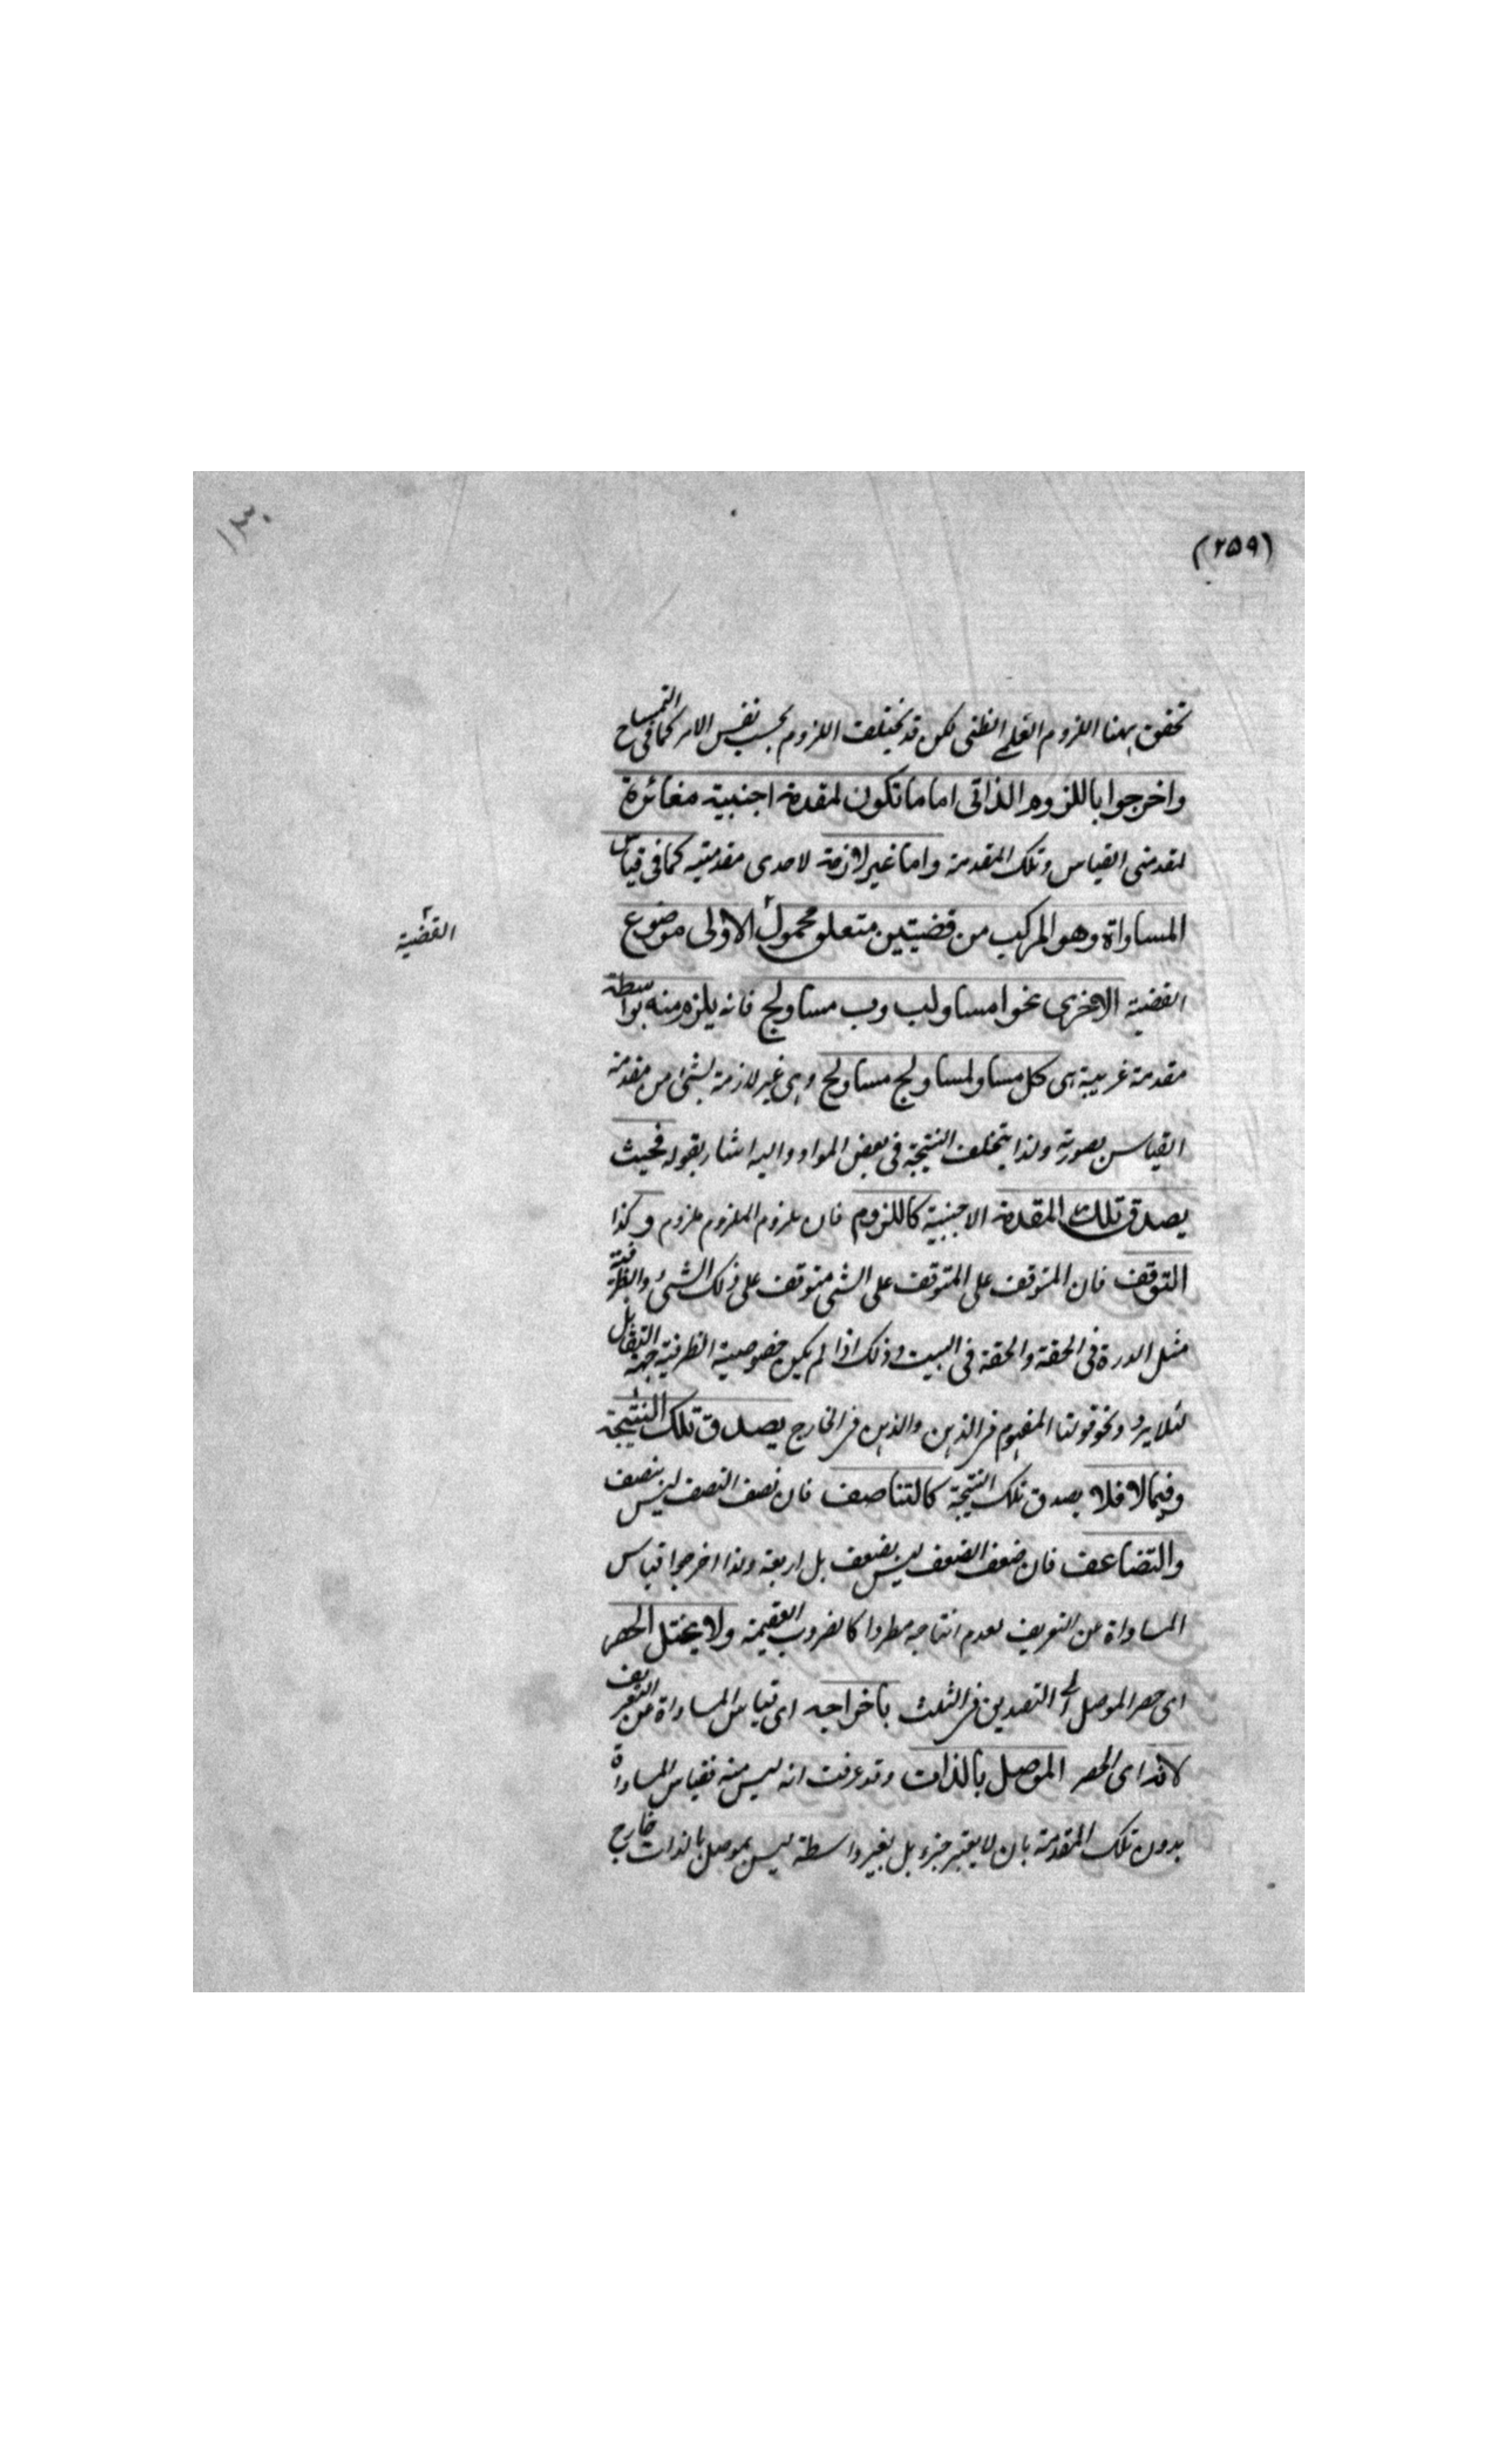 (۲۵۹)
۱۳۰
تحقق ههنا اللزوم العلمي الظني لكن قد يختلف اللزوم بحسب نفس الامر كما في التمساح
واخرجوا باللزوم الذاتي اما ما تكون لمقدمة اجنبية مغائرة
لمقدمتي القياس وتلك المقدمة واما غير لازمة لاحدى مقدمتيه كما في قياس
المساواة وهو المركب من قضيتين متعلق محمول الاولى موضوع
القضية
القضية الاخرى نحو ا مساو لب وب مساو لج فانه يلزم منه بواسطة
مقدمة غريبية هي كل مساو لمساو لج مساو لج وهي غير لازمة لشيء من مقدمة
القياس بصورته ولذا يتخلف النتيجة في بعض المواد واليه اشار بقوله فحيث
يصدق تلك المقدمة الاجنبية كاللزوم فان ملزوم الملزوم ملزوم وكذا
التوقف فان المتوقف على المتوقف على الشي متوقف على ذلك الشيء والظرفية
مثل الدرة في الحقة والحقة في البيت وذلك اذا لم يكن خصوصية الظرفية جهة التقابل
لئلا يرد ونحو قولنا المفهوم في الذهن والذهن في الخارج يصدق تلك النتيجة
وفيما لا فلا يصدق تلك النتيجة كالتناصف فان نصف النصف ليس بنصف
والتضاعف فان ضعف الضعف ليس بضعف بل اربعة ولذا اخرجوا قياس
المساواة من التعريف لعدم انتاجه مطردا كالضروب العقيمة ولا يختل الحصر
اى حصر الموصل الى التصديق في الثلث باخراجه اى قياس المساواة من التعريف
لانه اى الحصر الموصل بالذات وقد عرفت انه ليس منه فقياس المساواة
بدون تلك المقدمة بان لا يعتبر جزء بل بغير واسطة ليس بموصل بالذات خارج